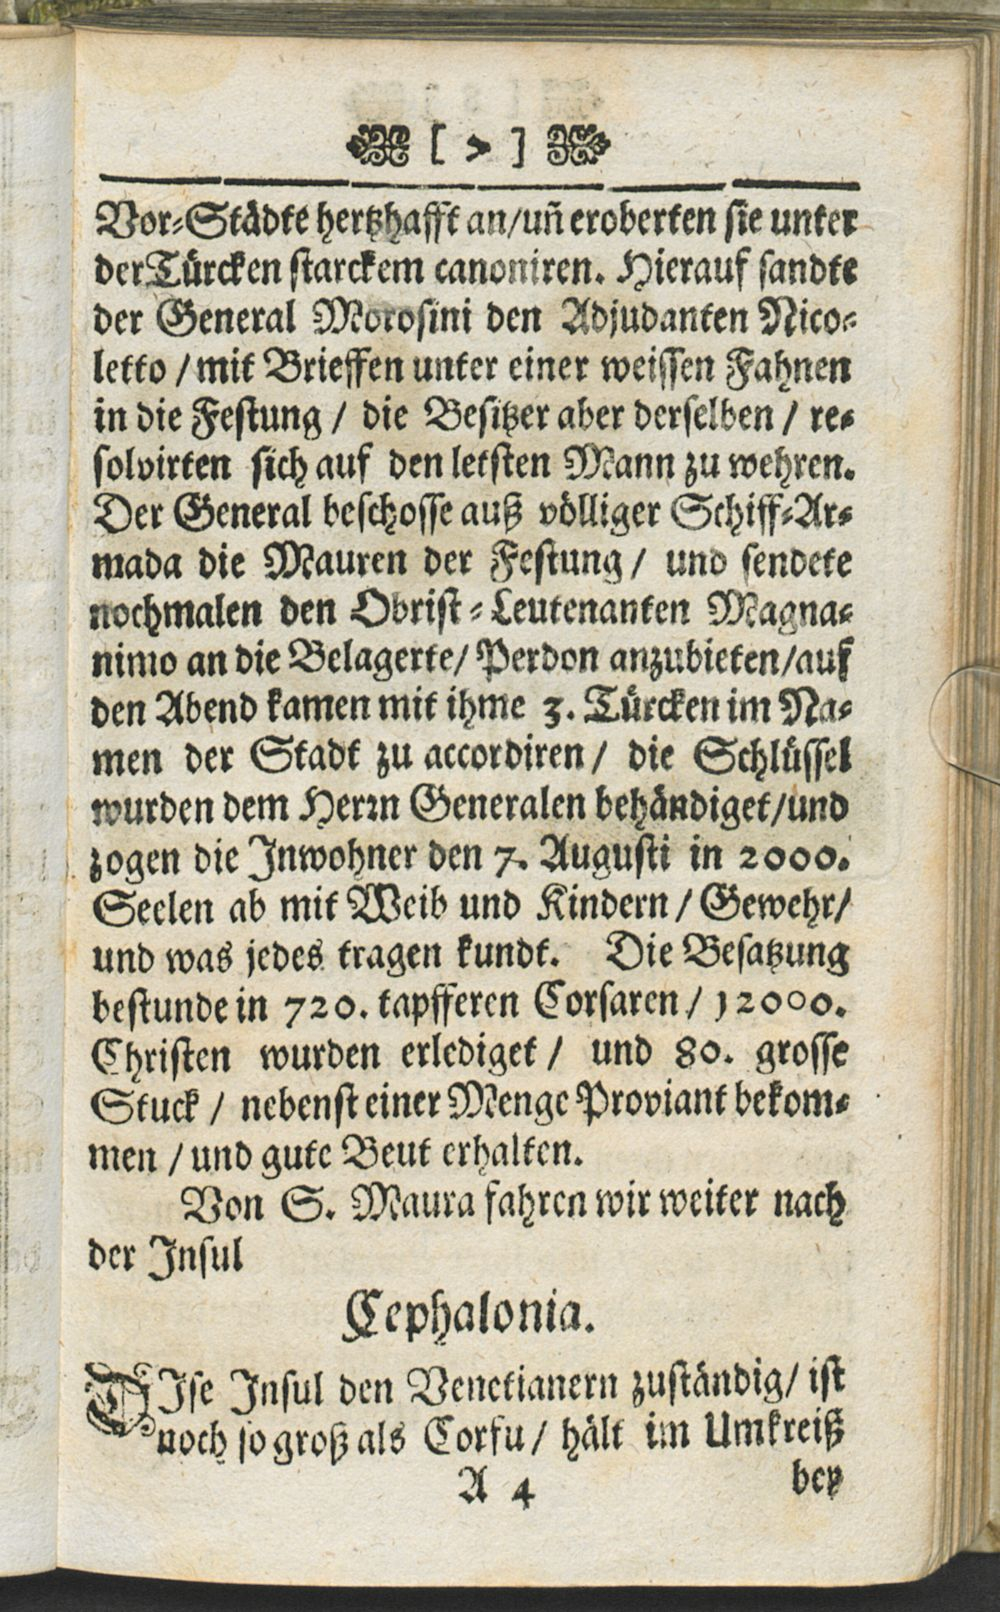 [ 7 ]
Vor-Städte hertzhafft an/uñ eroberten sie unter
der Türcken starckem canoniren. Hierauf sandte
der General Morosini den Adjudanten Nico-
letto / mit Brieffen unter einer weissen Fahnen
in die Festung / die Besitzer aber derselben / re-
solvirten sich auf den letsten Mann zu wehren.
Der General beschosse auß völliger Schiff-Ar-
mada die Mauren der Festung / und sendete
nochmalen den Obrist-Leutenanten Magna-
nimo an die Belagerte/ Perdon anzubieten/auf
den Abend kamen mit ihme 3. Türcken im Na-
men der Stadt zu accordiren / die Schlüssel
wurden dem Herrn Generalen behändiget/und
zogen die Inwohner den 7. Augusti in 2000.
Seelen ab mit Weib und Kindern / Gewehr/
und was jedes tragen kundt. Die Besatzung
bestunde in 720. tapfferen Corsaren / 12000.
Christen wurden erlediget / und 80. grosse
Stuck / nebenst einer Menge Proviant bekom-
men / und gute Beut erhalten.
Von S. Maura fahren wir weiter nach
der Insul
Cephalonia.
DIse Insul den Venetianern zuständig/ ist
noch so groß als Corfu / hält im Umkreiß
A 4 bey